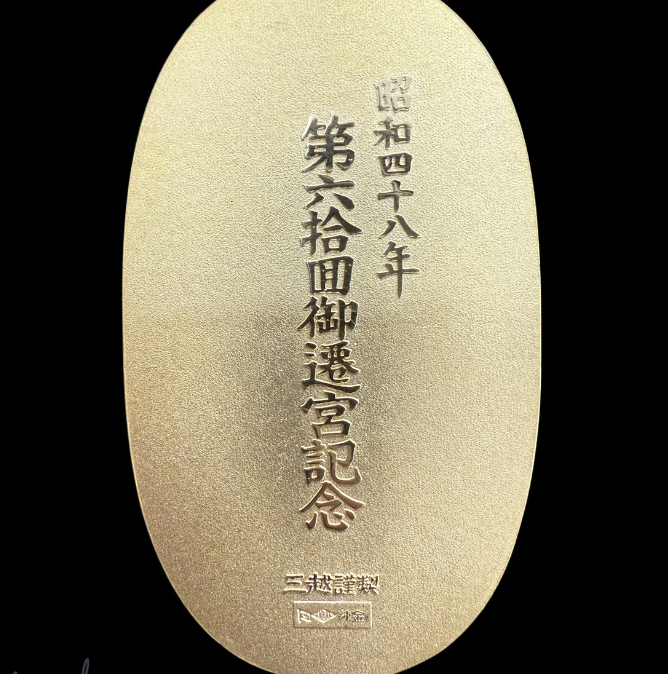 昭和四十八年
第六拾回御遷宮記念
三越謹製